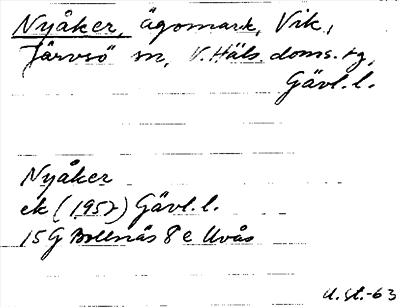 Nyåker, ägomark, Vik,
Järvsö sn, V. Häls. doms. tg,
Gävl. l.
Nyåker
ek (1957) Gävl. l.
15G Bollnäs 8e Uvås
U. St. -63